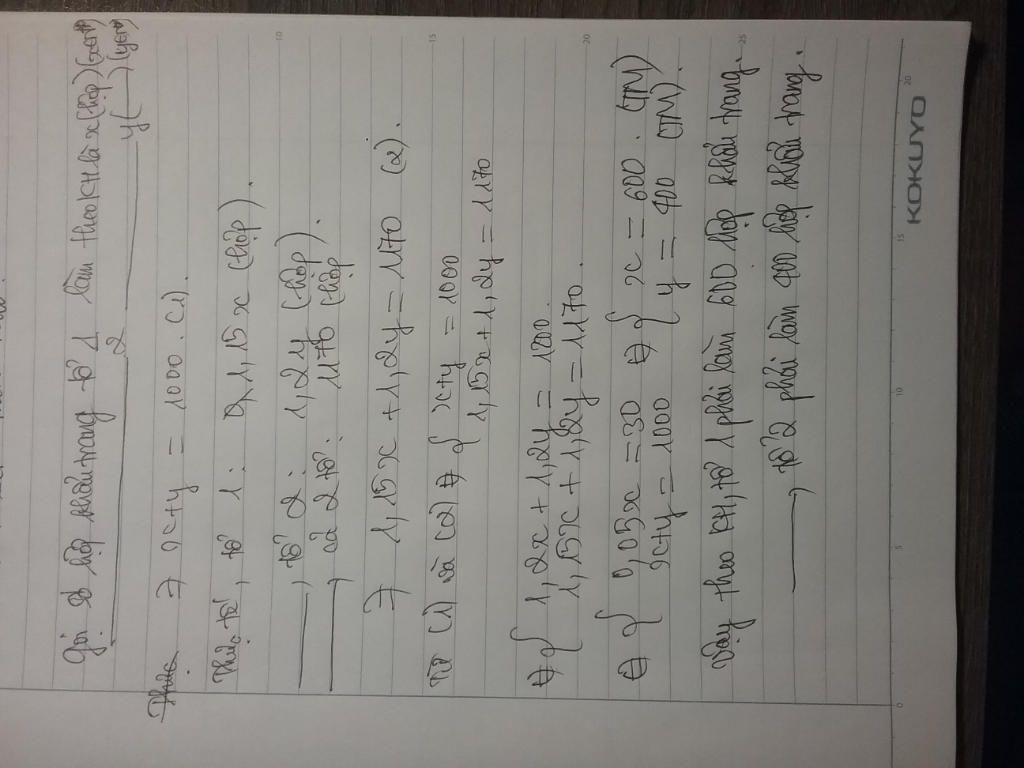 Gọi số hộp khẩu trang tổ 1 làm theo KH là x (hộp) (x∈N*)
——— 2 ——— y (—) (y∈N*)
Thực ⇒ x+y = 1000. (1).
Thực tế, tổ 1: 1,15x (hộp).
———, tổ 2: 1,2y (hộp)
———, cả 2 tổ: 1170 (hộp).
⇒ 1,15x + 1,2y = 1170 (2).
Từ (1) và (2) ⇒ { x+y = 1000
1,15x + 1,2y = 1170
⇔ { 1,2x + 1,2y = 1200
1,15x + 1,2y = 1170.
⇔ { 0,05x = 30 ⇔ { x = 600. (TM)
x+y = 1000 y = 400 (TM).
Vậy theo KH, tổ 1 phải làm 600 hộp khẩu trang.
———, tổ 2 phải làm 400 hộp khẩu trang.
KOKUYO
0 5 10 15 20
10 15 20 25